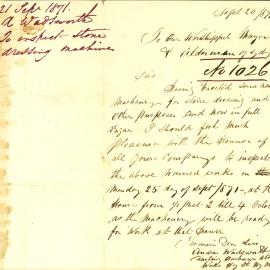 21 Sept 1871.
A Wadsworth
To inspect stone
dressing machines
Sept 20 /
To the Worshipful Mayor
& Alderman of
No 1026
Sir
Having Erected some
Machinery for stone dressing and
other purposes and now in full
I should feel much
pleasure with the Honour of
all your Company to inspect
the above named works on
Monday 25 day of Sept 1871 - at the
Hour from 2 till 4
as the Machinery will be ready
for work at that Hour
I remain Dear Sir